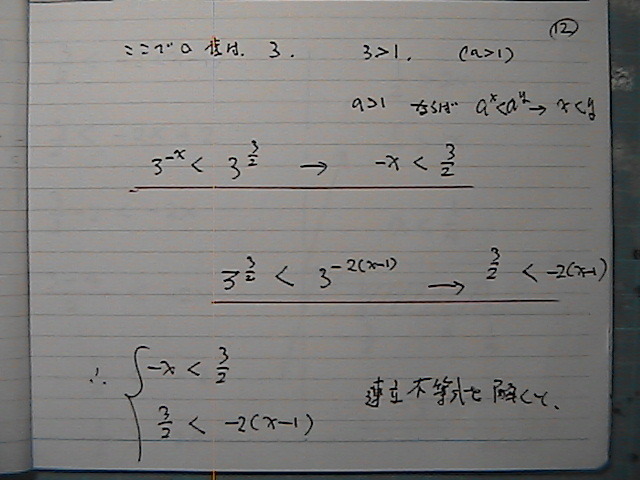 ⑫
ここでの底は、3. 3>1. (a>1)
a>1 ならば a^x<a^y→ x<y
3^{-x} < 3^{\frac{3}{2}} → -x < \frac{3}{2}
3^{\frac{3}{2}} < 3^{-2(x-1)} → \frac{3}{2} < -2(x-1)
∴ { -x < \frac{3}{2}
\frac{3}{2} < -2(x-1)
連立不等式を解くと、